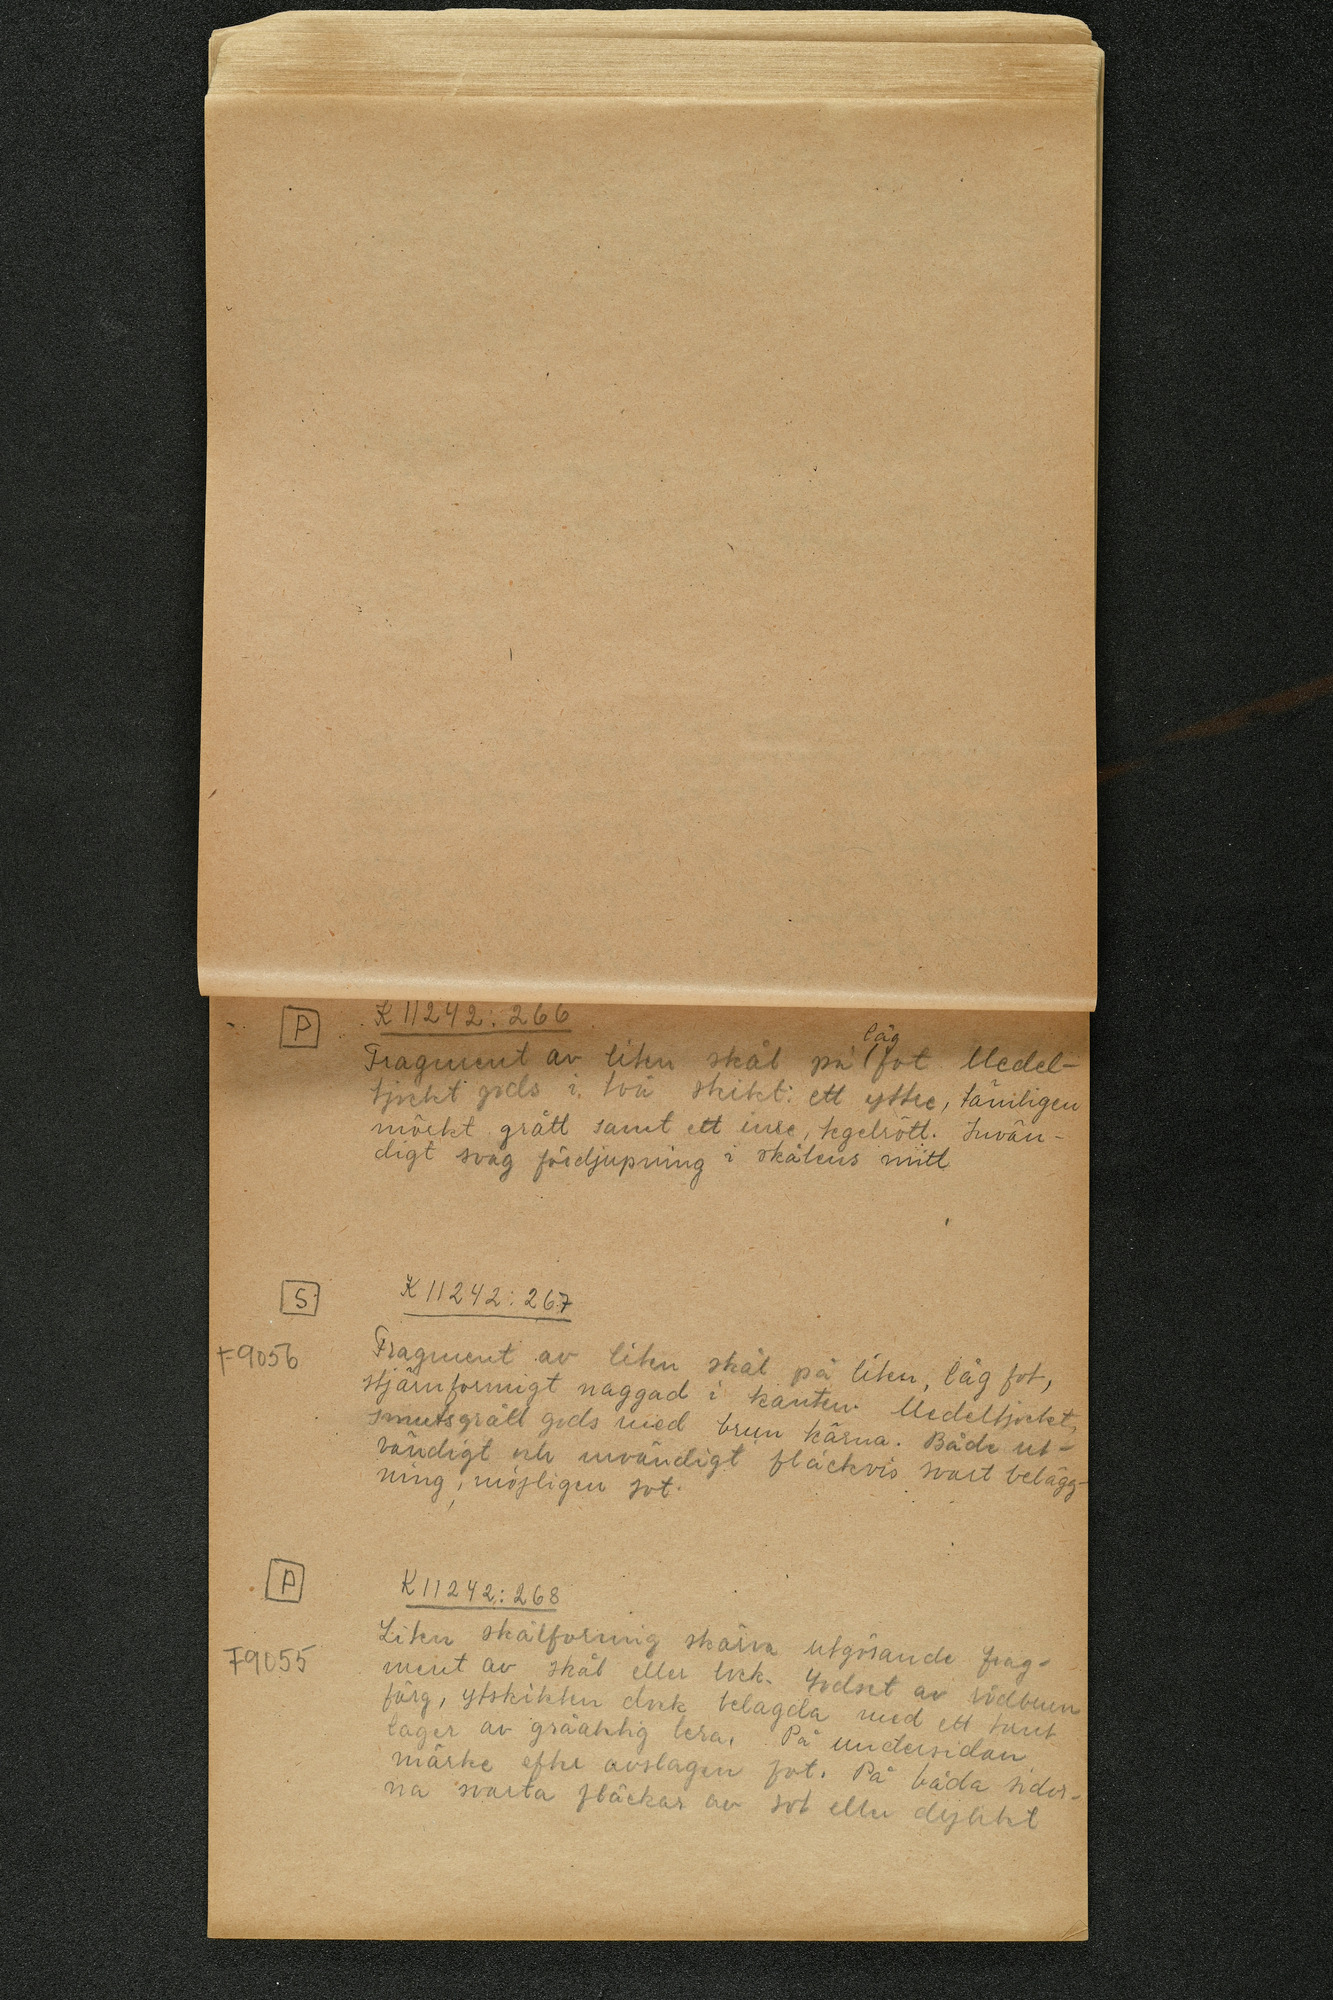 P K 11242:266
låg
Fragment av liten skål på fot Medel-
tjockt gods i två skikt: ett yttre, tämligen
mörkt grått samt ett inre, tegelrött. Invän-
digt svag fördjupning i skålens mitt
S K 11242:267
F9056
Fragment av liten skål på liten, låg fot,
stjärnformigt naggad i kanten. Medeltjockt,
smutsgrått gods med brun kärna. Både ut-
vändigt och invändigt fläckvis svart belägg-
ning, möjligen sot.
P K 11242:268
F9055
Liten skålformig skärva utgörande frag-
ment av skål eller lock. Godset av rödbrun
färg, ytskikten dock belagda med ett tunt
lager av gråaktig lera. På undersidan
märke efter avslagen fot. På båda sidor-
na svarta fläckar av sot eller dylikt